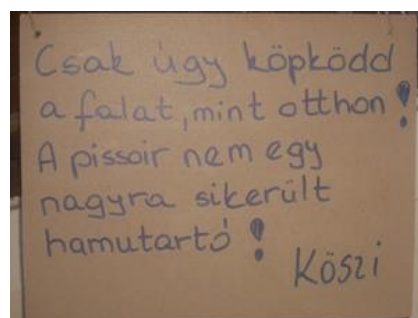 Csak úgy köpködd
a falat, mint otthon!
A pissoir nem egy
nagyra sikerült
hamutartó!
Köszi